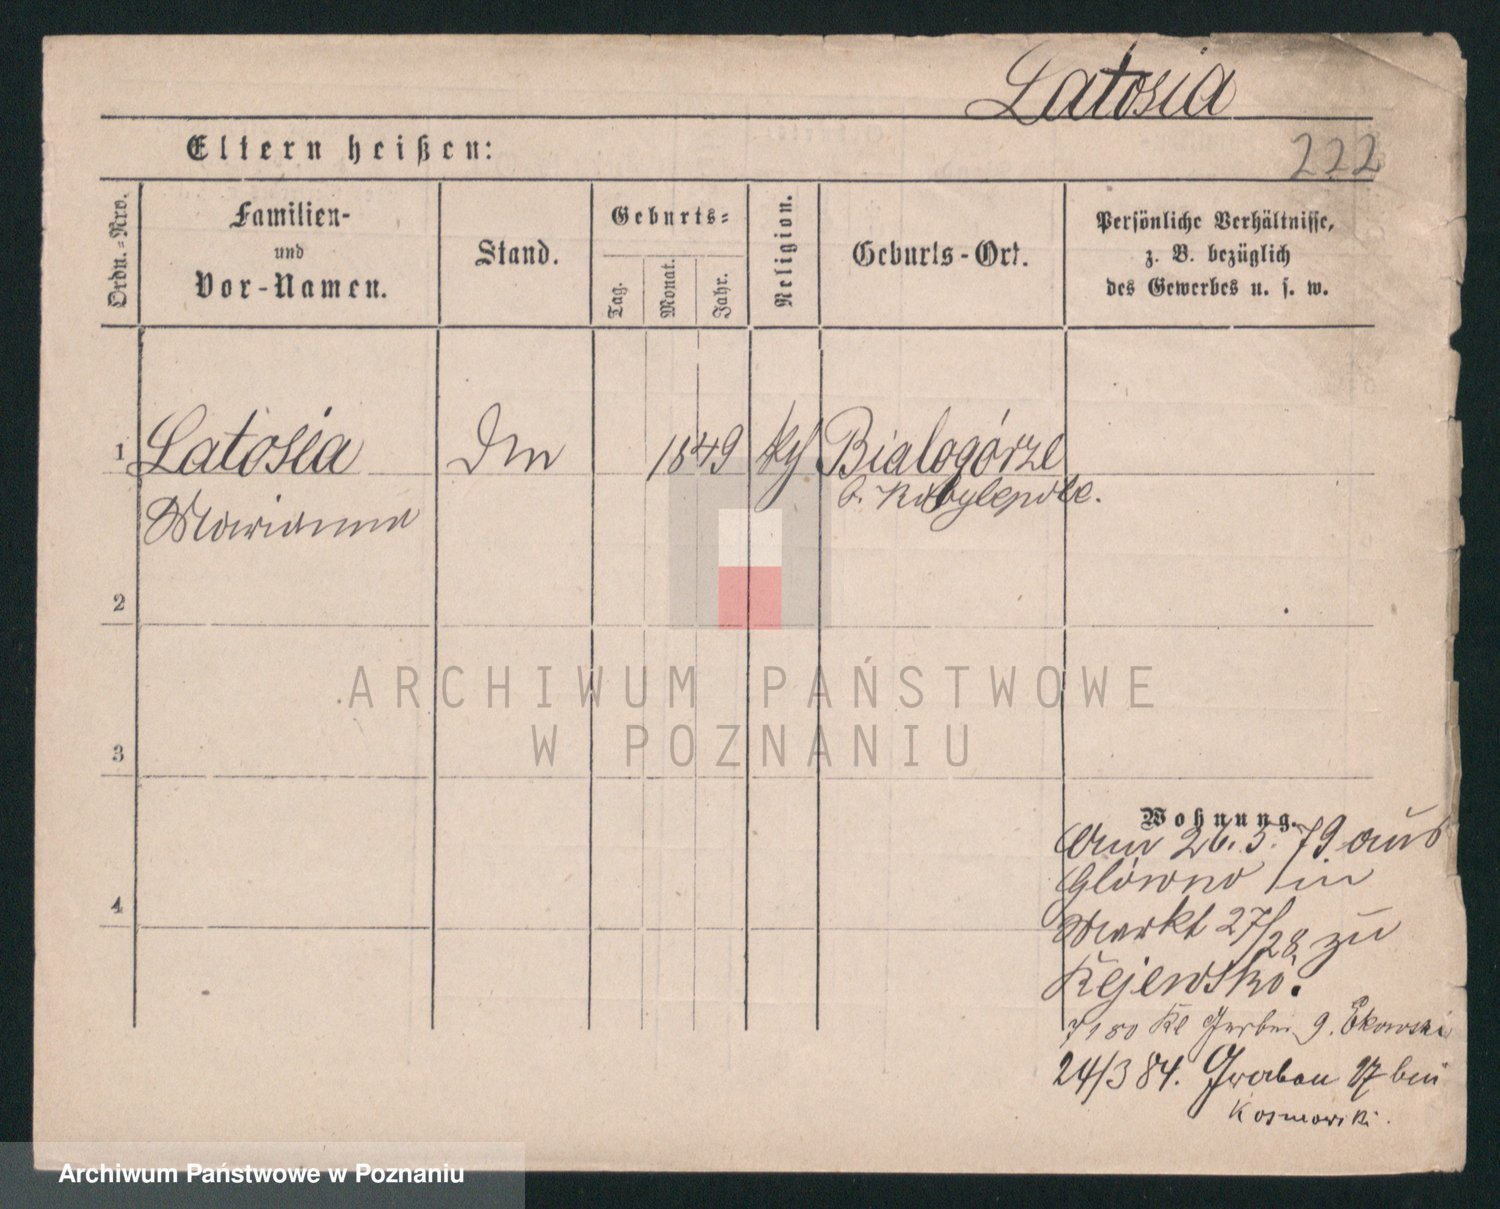 Latosia
222
Eltern heißen:
Ordn.-Nro.
Familien-
und
Vor-Namen.
Stand.
Geburts-
Tag.
Monat.
Jahr.
Religion.
Geburts-Ort.
Persönliche Verhältnisse,
z. B. bezüglich
des Gewerbes u. s. w.
1 Latosia 1849 Bialogórze
Marianna b. Kobylepole.
2
ARCHIWUM PAŃSTWOWE
W POZNANIU
3
4
Wohnung.
Am 26.3.79 aus
Glówno in
Markt 27/28 zu
Kejewski.
Kl Gerber 9.
24/3 84. Graben 17 bei
Kosmowski.
Archiwum Państwowe w Poznaniu